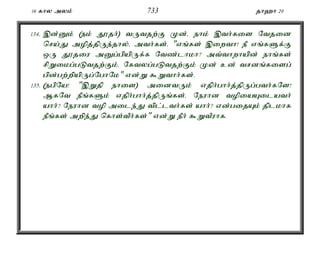 16 கால அலம் 733 தாஹா 20
134. இன்னும் (நம் தூதர்) வருவதற்கு முன், நாம் இவர்களை வேதனை
செய்து அழித்திருந்தால், அவர்கள், "எங்கள் இறைவா! நீ எங்களுக்கு
ஒரு தூதரை அனுப்பியிருக்க வேண்டாமா? அவ்வாறாயின் நாங்கள்
சிறுமைப்படுவதற்கும், கேவலப்படுவதற்கும் முன் உன் வசனங்களைப்
பின்பற்றியிருப்போமே" என்று கூறுவார்கள்.
135. (நபியே! "இறுதி நாளை) அனைவரும் எதிர்பார்த்திருப்பவர்களே!
ஆகவே நீங்களும் எதிர்பார்த்திருங்கள். நேரான வழியையுடையவர்
யார்? நேரான வழி அடைந்து விட்டவர்கள் யார்? என்பதையும் திடமாக
நீங்கள் அறிந்து கொள்வீர்கள்" என்று நீர் கூறுவீராக.